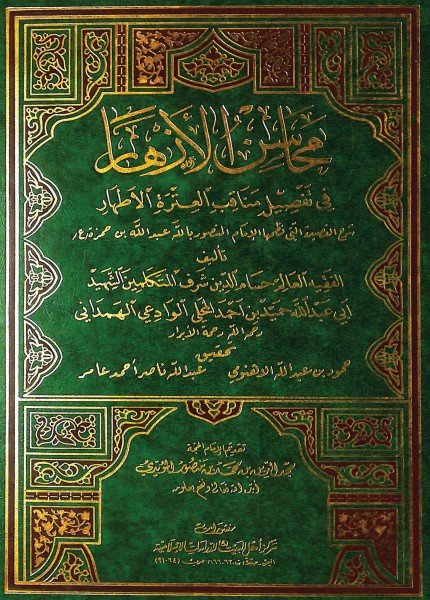 محاسن الأزهار
في تفصيل مناقب العترة الأطهار
شرح القصيدة التي نظمها الإمام المنصور بالله عبدالله بن حمزة (ع)
تأليف
الفقيه العالم حسام الدين شرف المتكلمين الشهيد
أبي عبد الله حميد بن أحمد المحلي الوادعي الهمداني
رحمه الله رحمة الأبرار
تحقيق
حمود بن عبد الله الأهنومي عبد الله ناصر أحمد عامر
تقديم الإمام الحجة
مجد الدين بن محمد بن منصور المؤيدي
أيده الله تعالى ونفع بعلومه
منشورات
مركز أهل البيت (ع) للدراسات الإسلامية